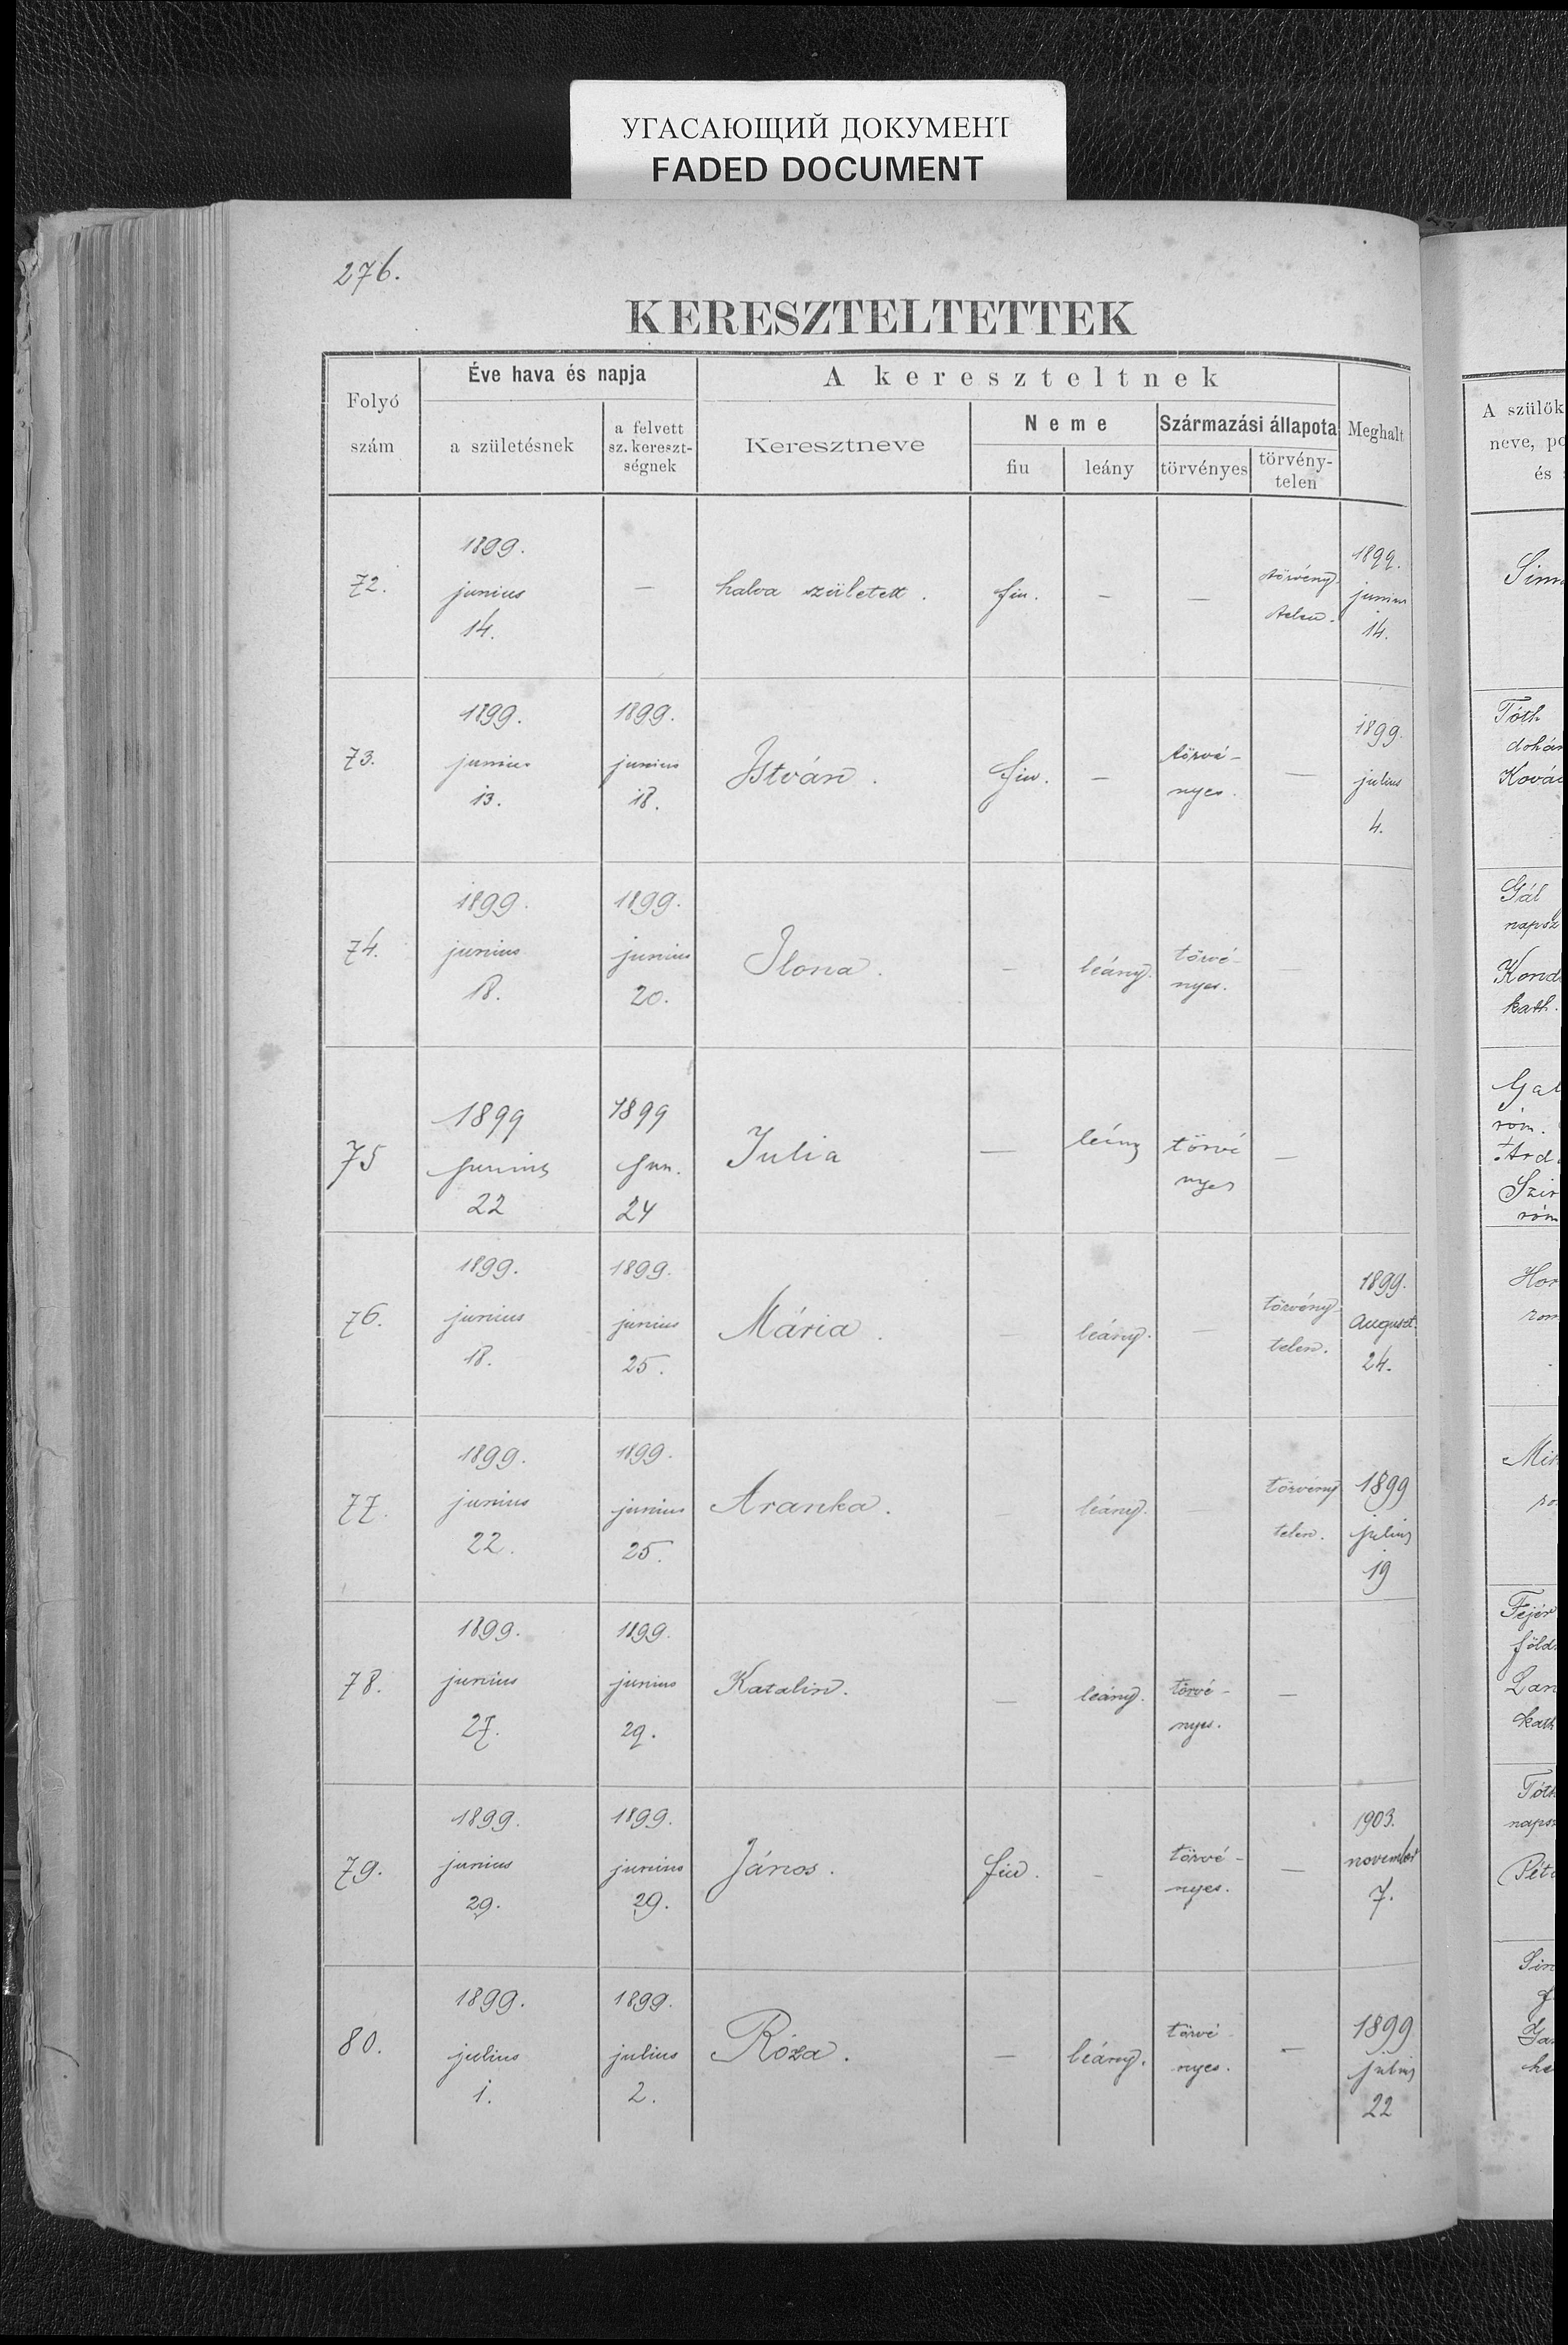 УГАСАЮЩИЙ ДОКУМЕНТ
FADED DOCUMENT
276.
KERESZTELTETTEK
Folyó szám
Éve hava és napja
a születésnek
a felvett sz. kereszt-ségnek
A kereszteltnek
Keresztneve
Neme
fiu
leány
Származási állapota
törvényes
törvény-telen
Meghalt
A szülők
neve, po
és
72. 1899. junius 14. — halva született. fiu. — — törvény telen. 1899. junius 14.
73. 1899. junius 13. 1899. junius 18. István. fiu. — törvé-nyes. — 1899. julius 4.
74. 1899. junius 18. 1899. junius 20. Ilona. — leány. törvé-nyes. —
75 1899 Junius 22 1899 Jun. 24 Julia — leány törvé nyes —
76. 1899. junius 18. 1899. junius 25. Mária. — leány. — törvény-telen. 1899. August. 24.
77. 1899. junius 22. 1899. junius 25. Aranka. — leány. törvény telen. 1899 julius 19
78. 1899. junius 27. 1899. junius 29. Katalin. — leány. törvé-nyes. —
79. 1899. junius 29. 1899. junius 29. János. fiu. — törvé-nyes. — 1903. november 7.
80. 1899. julius 1. 1899. julius 2. Róza. — leány. törvé-nyes. — 1899 julius 22
Tóth
dohán
Kovác
Gál
napsz
Kond
kath.
Gal
róm.
Szir
róm
Hor
rom
Mik
ro
Fejér
föld
kath
Tóth
napsz
Péte